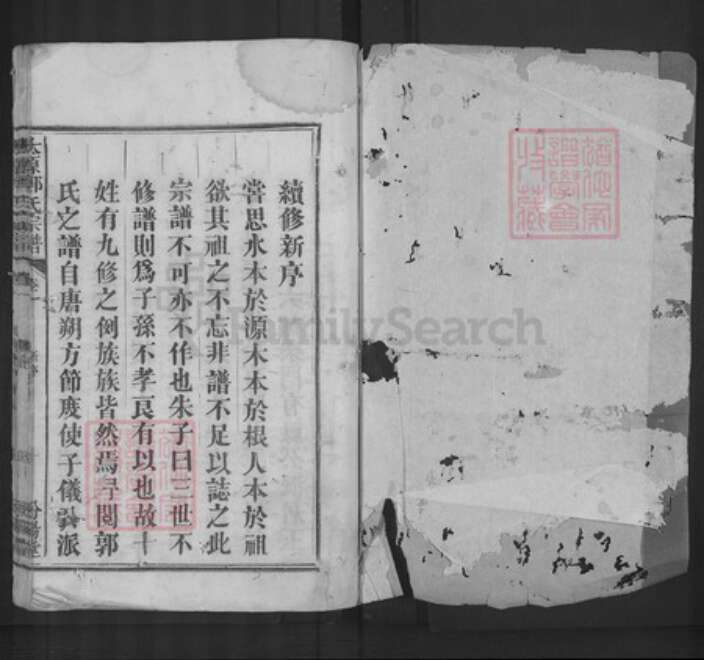 續修新序
甞思水本於源木本於根人本於祖
欲其祖之不忘非譜不足以誌之此
宗譜不可亦不作也朱子曰三世不
修譜則爲子孫不孝良有以也故十
姓有九修之倒族族皆然焉尋閱郭
氏之譜自唐朔方節度使子儀公派
郭氏宗譜
卷
FamilySearch
譜學會
收藏